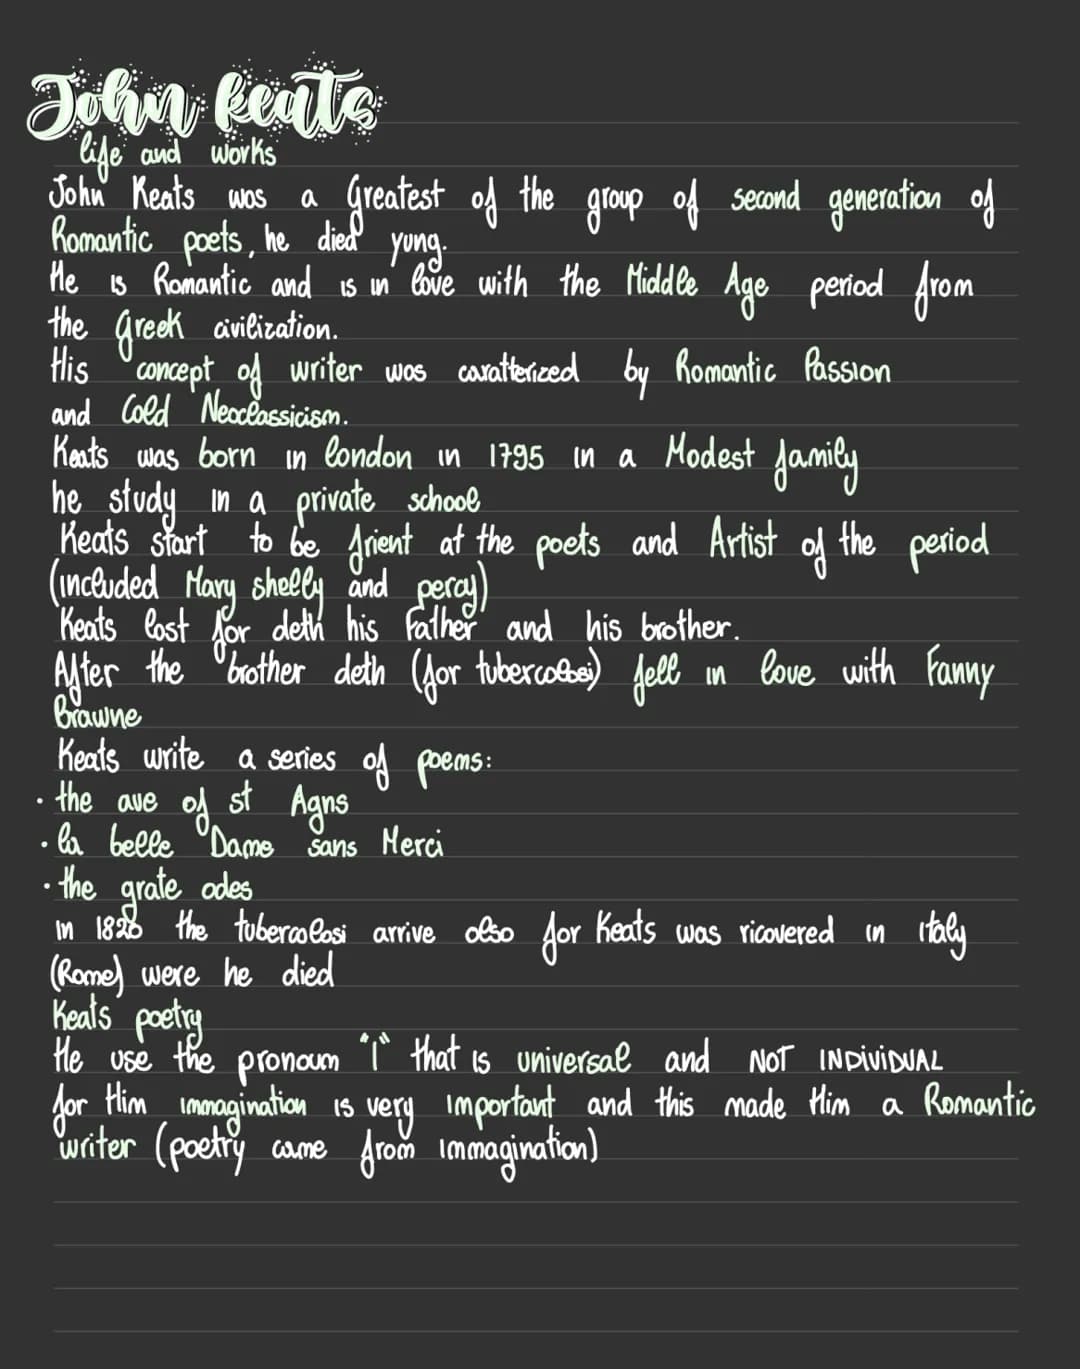 John keats
life and works
John Keats was a Greatest of the group of second generation of
Romantic poets, he died yung.
He is Romantic and is in love with the Middle Age period from
the Greek civilization.
His concept of writer was caratterized by Romantic Passion
and Cold Neoclassicism.
Keats was born in london in 1795 in a Modest family
he study in a private school
Keats start to be frient at the poets and Artist of the period
(included Mary shelly and percy)
Keats lost for deth his Father and his brother.
After the brother deth (for tubercolosi) fell in love with Fanny
Brawne
Keats write a series of poems:
• the ave of st Agns
• la belle Dame sans Merci
• the grate odes
in 1820 the tubercolosi arrive also for Keats was ricovered in italy
(Rome) were he died
Keats poetry
He use the pronoum "I" that is universal and NOT INDIVIDUAL
for Him immagination is very important and this made Him a Romantic
writer (poetry came from immagination)